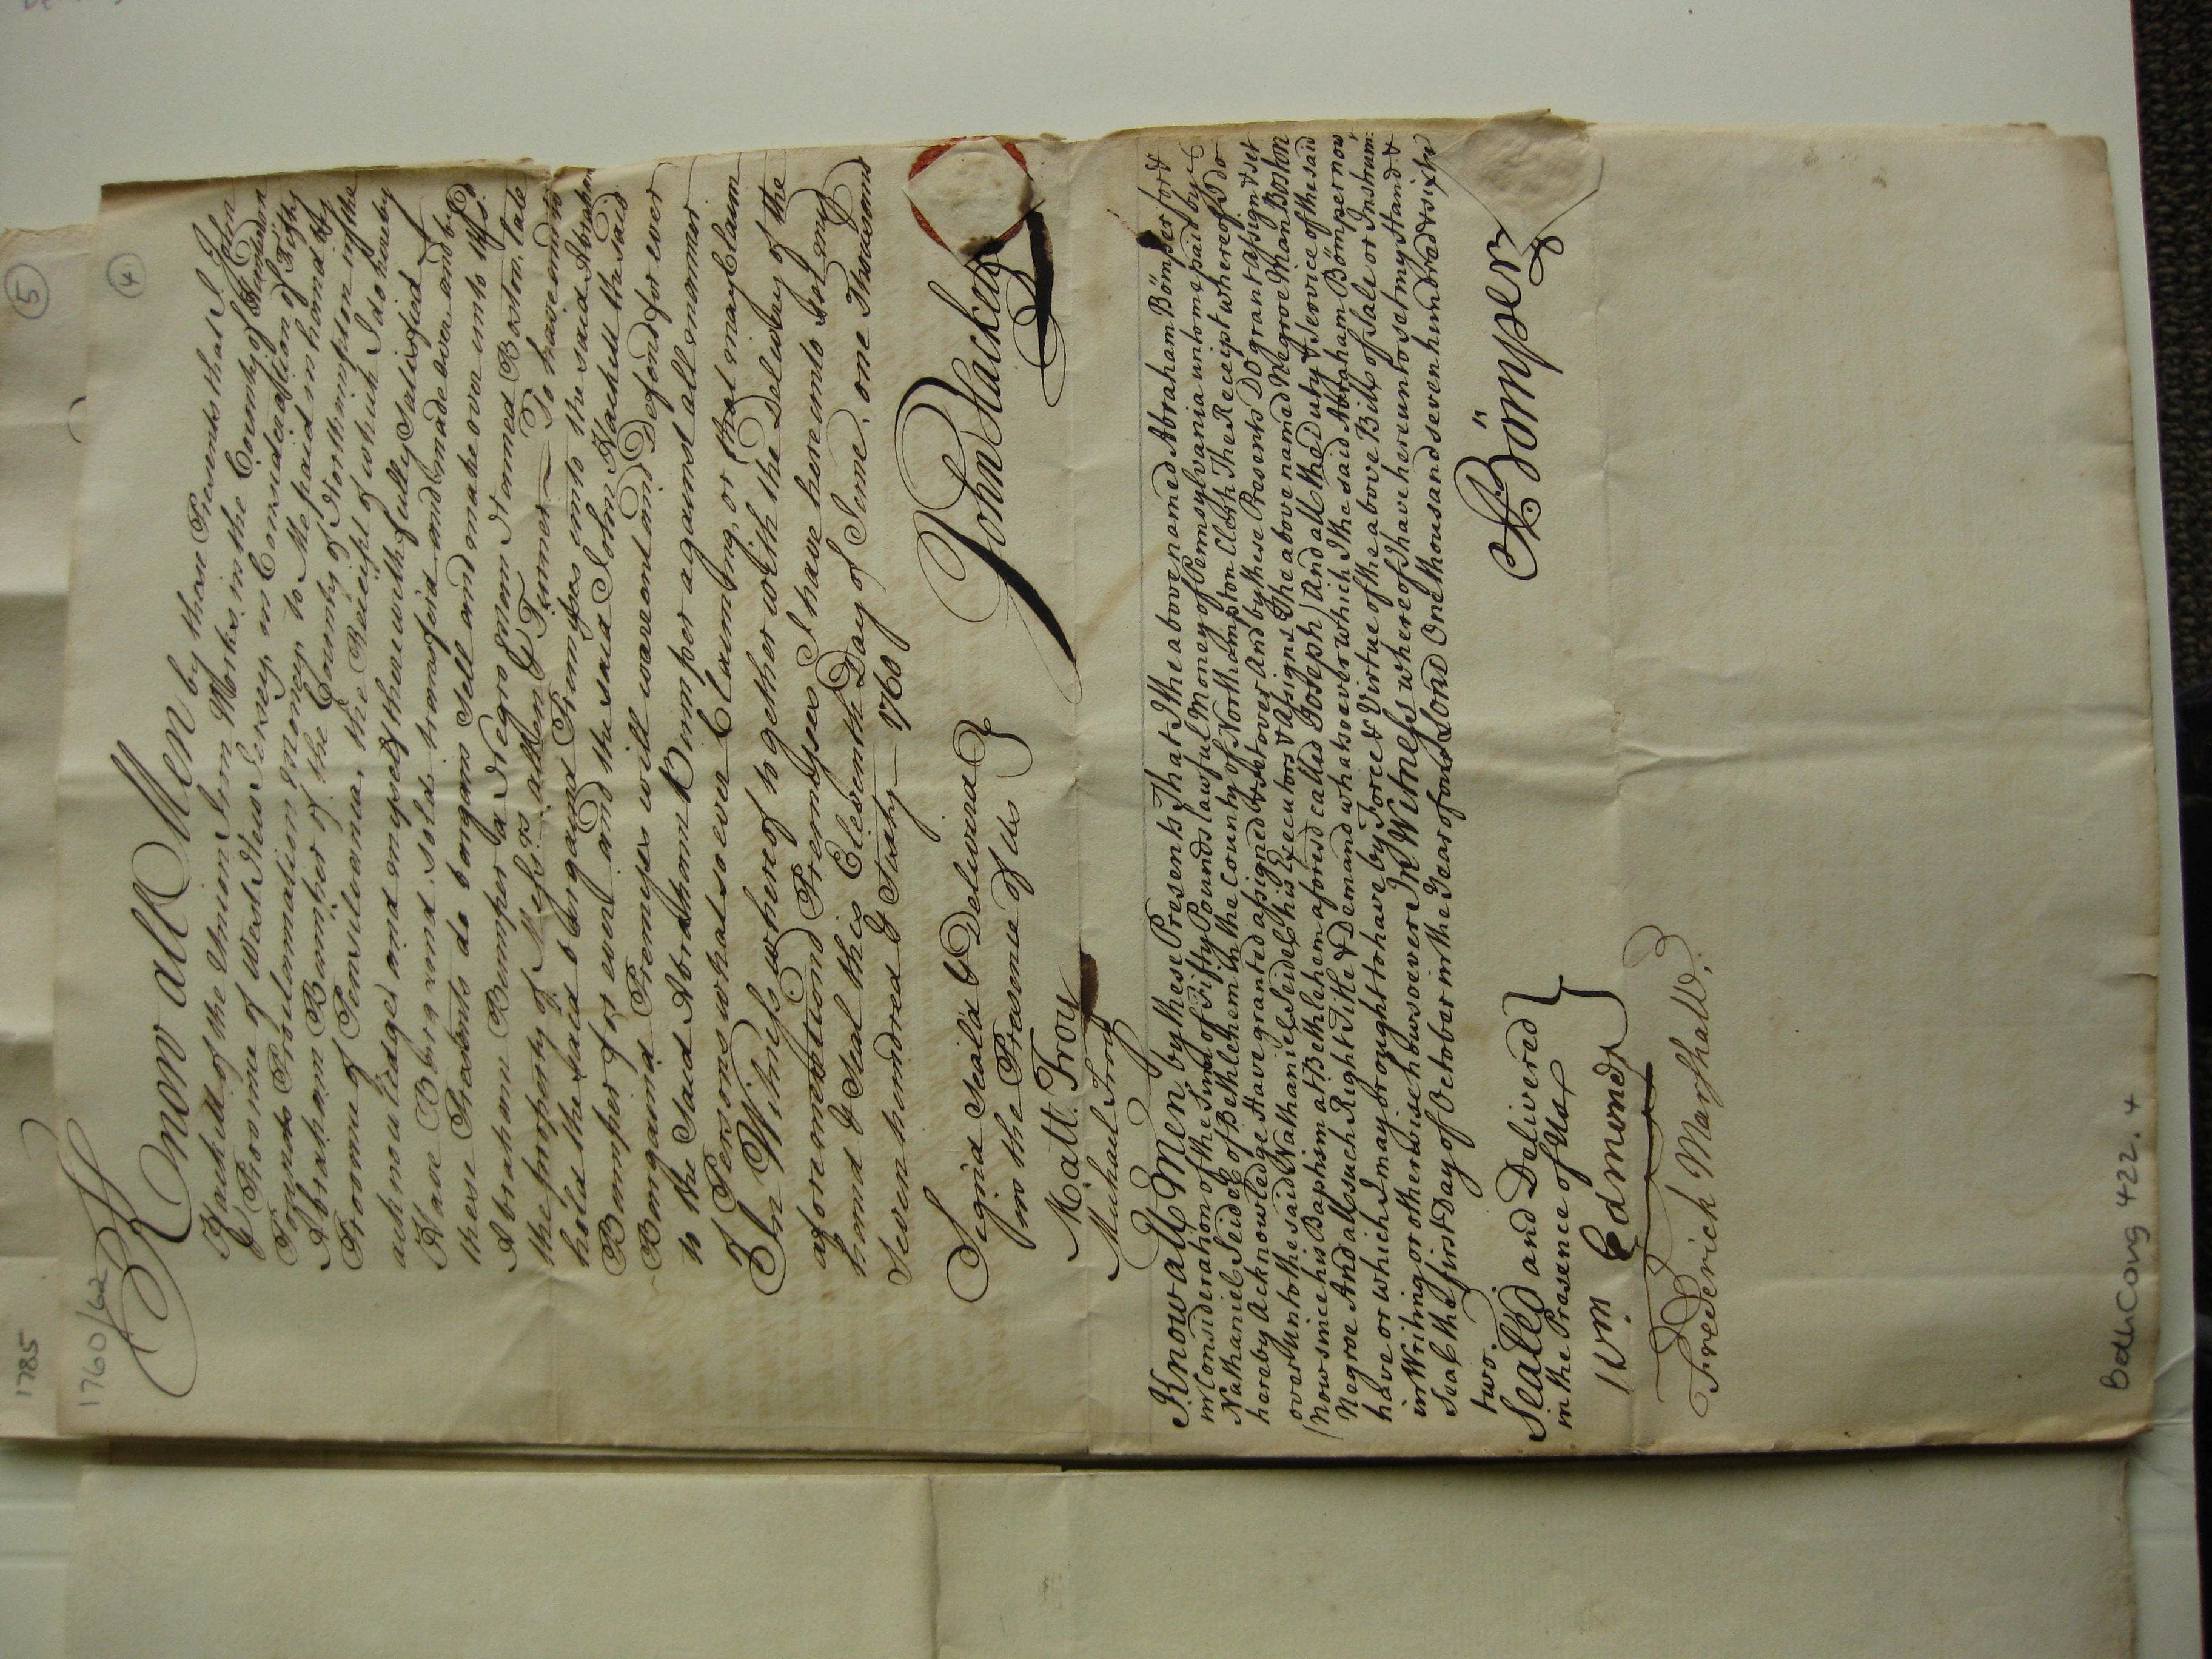 5
1785
1760/62
4
Know all Men by these Presents that I John
Hackett of the Union Iron Works in the County of Hunterdon
& Provime of West New Jersey, in Consideration of Fifty
Pounds Proclammation money to Me paid in hannd by
Abraham Bumper of the County of Northampton in the
Provime of Pensilvania, the Receipt of which I do hereby
acknowledge, and myself therewith fully Satisfied
Have Bbargaind, sold, transferd and made over, and by
these Presents do bargain sell and make over unto the sd.
Abraham Bumper, a Negro mann Nanmed Boston, late
the property of Messrs. Allen & Turner — To have and to
hold the said bargaind Premises unto the said Abraham
Bumper for ever, and the said John Hackett the said
Bargaind Premises will warrant and Defend for ever
to the Said Abraham Bumper against all manner
of Persons whatsoever Claiming, or that may Claim
In Witness whereof together with the Delivery of the
aforementiond Premmises I have hereunto Set my
hand & Seal this Eleventh Day of June, one Thousand
Seven hundred & Sixty — 1760
Signd Seal'd & Deliverd
in the Presence of Us
John Hackett
Matt. Troy
Michael Troy
Know all Men by these Presents That I the above named Abraham Bömper for &
in Consideration of the Sum of Fifty Pounds lawful Money of Pennsylvania unto me paid by
Nathaniel Seidel of Bethlehem in the County of Northampton Clerk The Receipt whereof I do
hereby Acknowledge Have granted assigned & set over And by these Presents Do grant assign & set
over Unto the said Nathaniel Seidel his Executors & Assigns The above named Negroe Man Boston
(Now since his Baptism at Bethlehem aforesd called Joseph) And all the Duty & Service of the said
Negroe And all such Right Title & Demand whatsoever which I the said Abraham Bömper now
have or which I may or ought to have by Force & Virtue of the above Bill of Sale or Instrum:
in Writing or otherwise howsoever In Witness whereof I have hereunto set my Hand &
Seal the first Day of October in the Year of our Lord One thousand seven hundred & sixty
two.
Sealed and Delivered
in the Presence of Us
A Bömper
Wm. Edmonds
Frederick Marshall.
BethCong 422.4